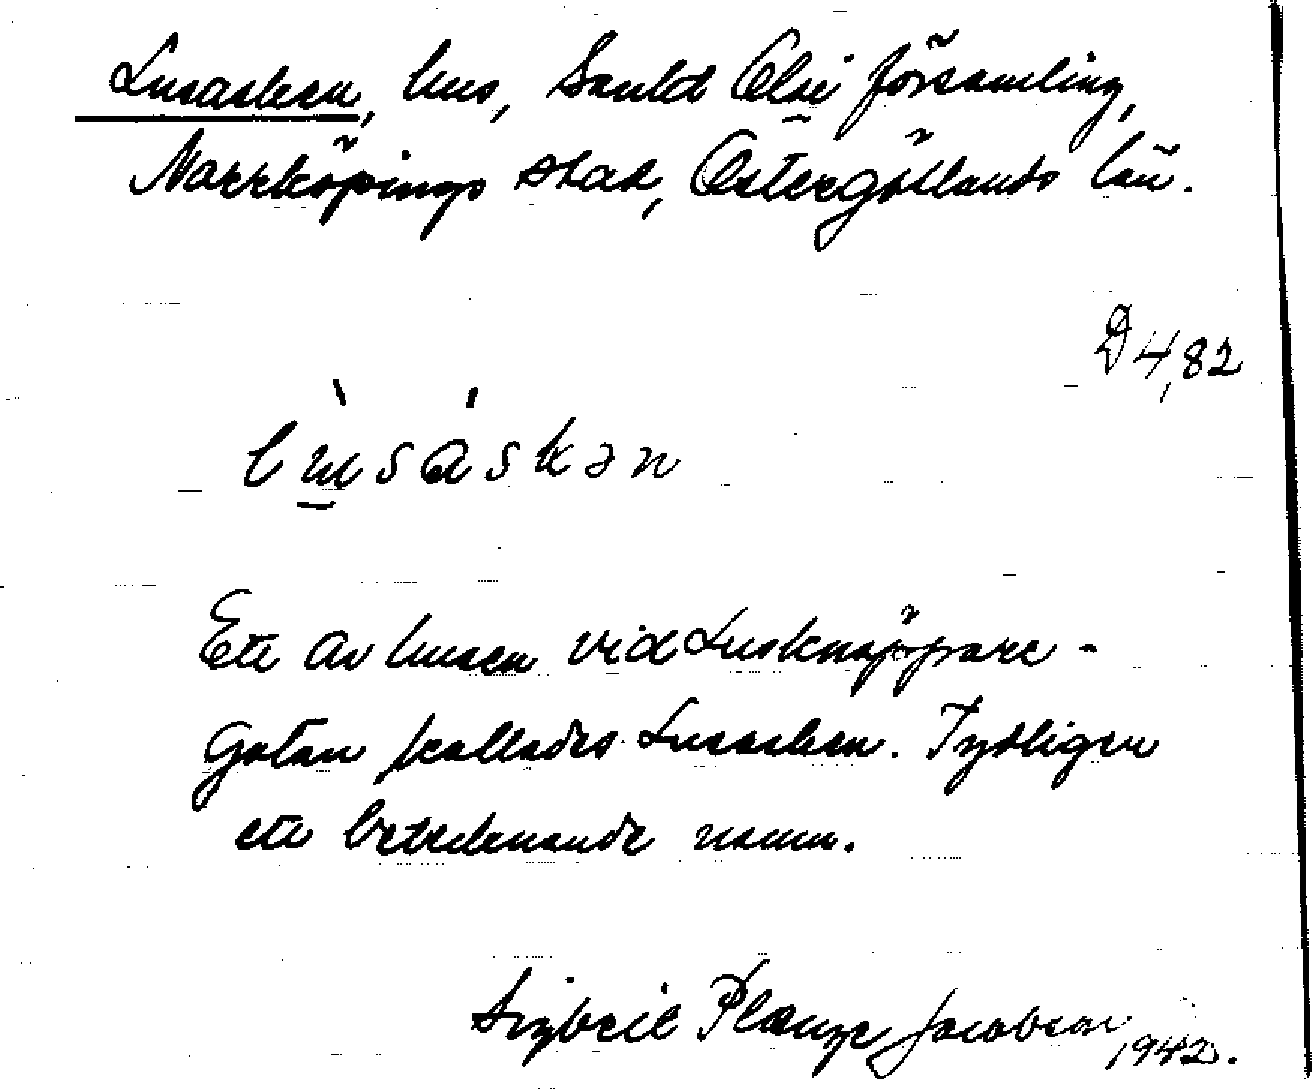 Lusasken, hus, Sankt Olai församling,
Norrköpings stad, Östergötlands län.
D 4,82
lu̱sáskən
Ett av husen vid Lusknäppare-
gatan kallades Lusasken. Tydligen
ett betecknande namn.
Sigbrit Plænge Jacobson 1942.